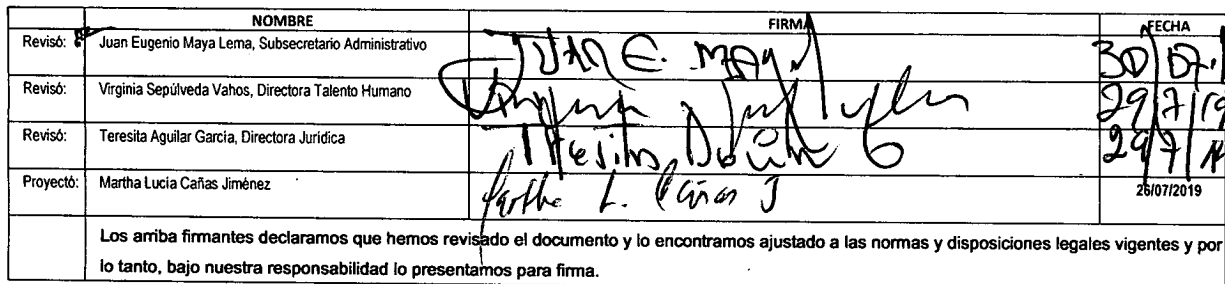 NOMBRE FIRMA FECHA
Revisó: Juan Eugenio Maya Lema, Subsecretario Administrativo JUAN E. MAYA 30/07/1
Revisó: Virginia Sepúlveda Vahos, Directora Talento Humano 29/7/19
Revisó: Teresita Aguilar García, Directora Jurídica Teresita 29/7/19
Proyectó: Martha Lucía Cañas Jiménez Martha L. Cañas J 26/07/2019
Los arriba firmantes declaramos que hemos revisado el documento y lo encontramos ajustado a las normas y disposiciones legales vigentes y por
lo tanto, bajo nuestra responsabilidad lo presentamos para firma.